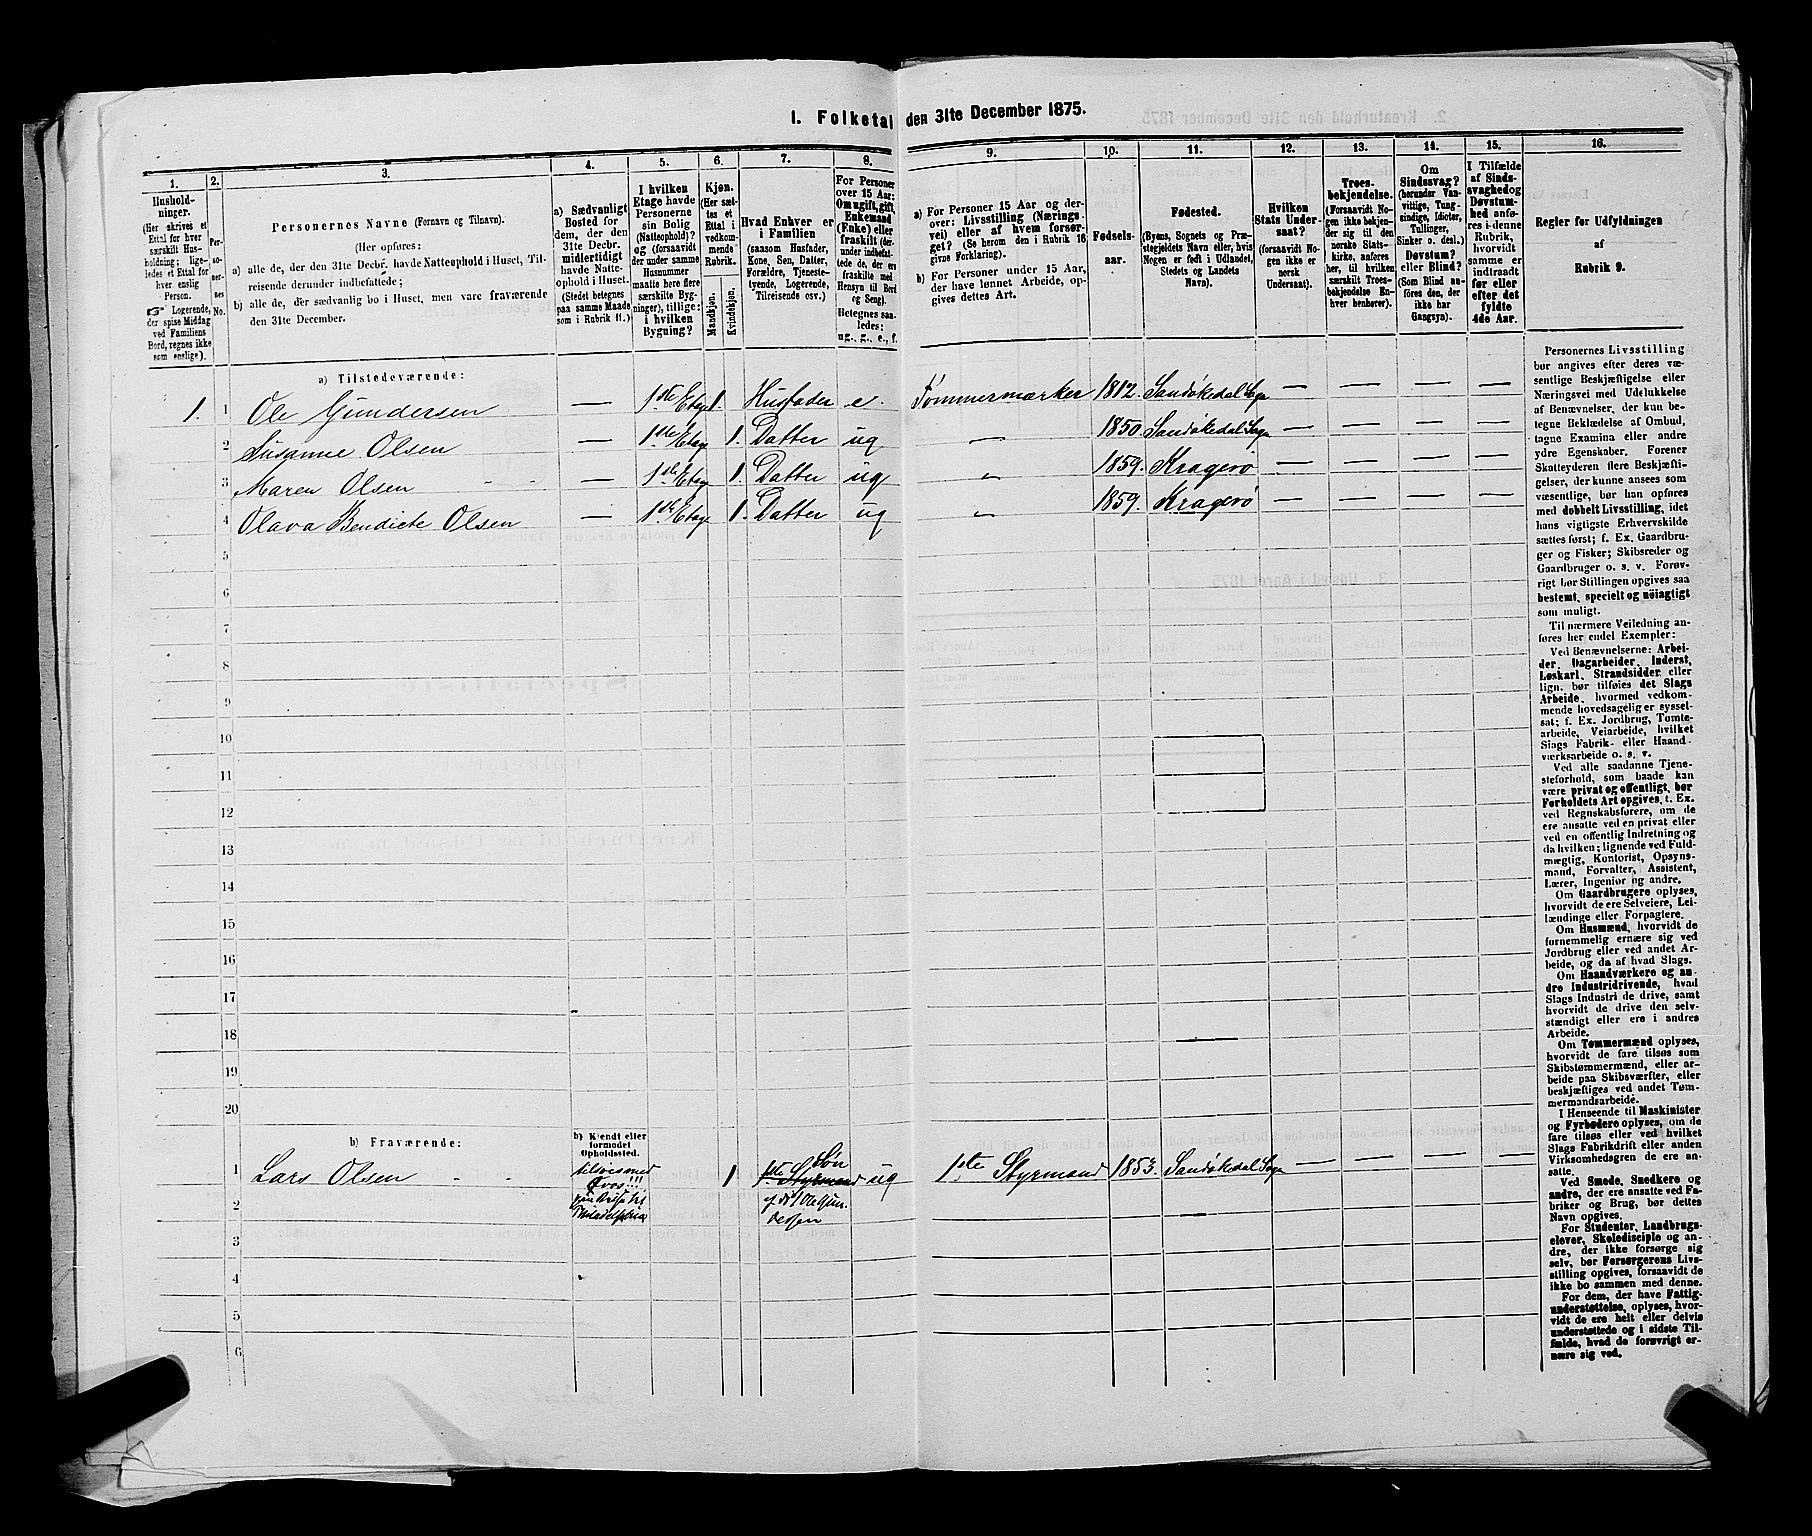 I. Folketal den 31te December 1875.
1.
Husholdninger.
(Her skrives et Ettal for hver særskilt Husholdning; ligeledes et Ettal for hver enslig Person.
☞ Logerende, der spise Middag ved Familiens Bord, regnes ikke som enslige).
2.
Personernes No.
3.
Personernes Navne (Fornavn og Tilnavn).
(Her opføres:
a) alle de, der den 31te Decbr. havde Natteophold i Huset, Tilreisende derunder indbefattede;
b) alle de, der sædvanlig bo i Huset, men vare fraværende den 31te December.
4.
a) Sædvanligt Bosted for dem, der den 31te Decbr. midlertidigt havde Natteophold i Huset.
(Stedet betegnes paa samme Maade som i Rubrik 11.)
5.
I hvilken Etage havde Personerne sin Bolig (Natteophold)?
(forsaavidt der under samme Husnummer maatte høre flere særskilte Bygninger), tillige: i hvilken Bygning?
6.
Kjøn.
(Her sættes et Ettal i vedkommende Rubrik.
Mandkjøn.
Kvindekjøn.
7.
Hvad Enhver er i Familien
(saasom Husfader, Kone, Søn, Datter, Forældre, Tjenestetyende, Logerende, Tilreisende osv.)
8.
For Personer over 15 Aar: Om ugift, gift, Enkemand (Enke) eller fraskilt (derunder indbefattede de, der ere fraskilte med Hensyn til Bord og Seng).
Betegnes saaledes:
ug., g., e., f.
9.
a) For Personer 15 Aar og derover: Livsstilling (Næringsvei) eller af hvem forsørget? (Se herom den i Rubrik 16 givne Forklaring).
b) For Personer under 15 Aar, der have lønnet Arbeide, opgives dettes Art.
10.
Fødselsaar.
11.
Fødested.
(Byens, Sognets og Præstegjeldets Navn eller, hvis Nogen er født i Udlandet, Stedets og Landets Navn).
12.
Hvilken Stats Undersaat?
(forsaavidt Nogen ikke er norsk Undersaat).
13.
Troesbekjendelse.
(Forsaavidt Nogen ikke bekjender sig til den norske Statskirke, anføres her, til hvilken særskilt Troesbekjendelse Enhver henhører).
14.
Om Sindssvag?
(herunder Vanvittige, Tungsindige, Idioter, Tullinger, Sinker o. desl.)
Døvstum?
eller Blind?
(Som Blind anføres den, der ikke har Gangsyn).
15.
I Tilfælde af Sindssvaghed og Døvstumhed anføres i denne Rubrik, hvorvidt samme er indtraadt før eller efter det fyldte 4de Aar.
16.
Regler for Udfyldningen
af
Rubrik 9.
a) Tilstedeværende:
1. 1 Ole Gundersen — 1ste Etage 1. Husfader e. Tømmermærker 1812. Sandøkedal Sogn — — — —
2 Susanne Olsen — 1ste Etage 1. Datter ug „ 1850. Sandøkedal Sogn — — — —
3 Maren Olsen " " — 1ste Etage 1. Datter ug „ 1859. Kragerø — — — —
4 Olava Bendicte Olsen — 1ste Etage 1. Datter ug „ 1859. Kragerø — — — —
5
6
7
8
9
10
11
12
13
14
15
16
17
18
19
20
b) Fraværende:
b) Kjendt eller formodet Opholdssted.
1 Lars Olsen " " tilveis med 1 1ste Styrmand Søn ug 1ste Styrmand 1853. Sandøkedal Sogn — — — —
2 Philadelphia
3
4
5
6
Personernes Livsstilling
bør angives efter deres væ-
sentlige Beskjæftigelse eller
Næringsvei med Udelukkelse
af Benævnelser, der kun be-
tegne Beklædelse af Ombud,
tagne Examina eller andre
ydre Egenskaber. Forener
Skatteyderen flere Beskjæfti-
gelser, der kunne ansees som
væsentlige, bør han opføres
med dobbelt Livsstilling, idet
hans vigtigste Erhvervskilde
sættes først; f. Ex. Gaardbru-
ger og Fisker; Skibsreder og
Gaardbruger o. s. v. Forøv-
rigt bør Stillingen opgives saa
bestemt, specielt og nøiagtigt
som muligt.
Til nærmere Veiledning an-
føres her endel Exempler:
Ved Benævnelserne: Arbei-
der, Dagarbeider, Inderst,
Løskarl, Strandsidder eller
lign. bør tilføies det Slags
Arbeide, hvormed vedkom-
mende hovedsagelig er syssel-
sat; f. Ex. Jordbrug, Tomte-
arbeide, Veiarbeide, hvilket
Slags Fabrik- eller Haand-
værksarbeide o. s. v.
Ved alle saadanne Tjene-
steforhold, som baade kan
være privat og offentligt, bør
Forholdets Art opgives, t. Ex.
ved Regnskabsførere, om de
ere ansatte ved en privat eller
ved en offentlig Indretning og
da hvilken; lignende ved Fuld-
mægtig, Kontorist, Opsyns-
mand, Forvalter, Assistent,
Lærer, Ingeniør og andre.
Om Gaardbrugere oplyses,
hvorvidt de ere Selveiere, Lei-
lændinge eller Forpagtere.
Om Husmænd, hvorvidt de
fornemmelig ernære sig ved
Jordbrug eller ved andet Ar-
beide, og da af hvad Slags.
Om Haandværkere og an-
dre Industridrivende, hvad
Slags Industri de drive, samt
hvorvidt de drive den selv-
stændigt eller ere i andres
Arbeide.
Om Tømmermænd oplyses,
hvorvidt de fare tilsøs som
Skibstømmermænd, eller ar-
beide paa Skibsværfter, eller
beskjæftiges ved andet Tøm-
mermandsarbeide.
I Henseende til Maskinister
og Fyrbødere oplyses, om de
fare tilsøs eller ved hvilket
Slags Fabrikdrift eller anden
Virksomhedsgren de ere an-
satte.
Ved Smede, Snedkere og
andre, der ere ansatte ved Fa-
briker og Brug, bør dettes
Navn opgives.
For Studenter, Landbrugs-
elever, Skoledisciple og an-
dre, der ikke forsørge sig
selv, bør Forsørgerens Livs-
stilling opgives, forsaavidt de
ikke bo sammen med denne.
For dem, der have Fattig-
understøttelse, oplyses, hvor-
vidt de ere helt eller delvis
understøttede og i sidste Til-
fælde, hvad de forøvrigt er-
nære sig ved.